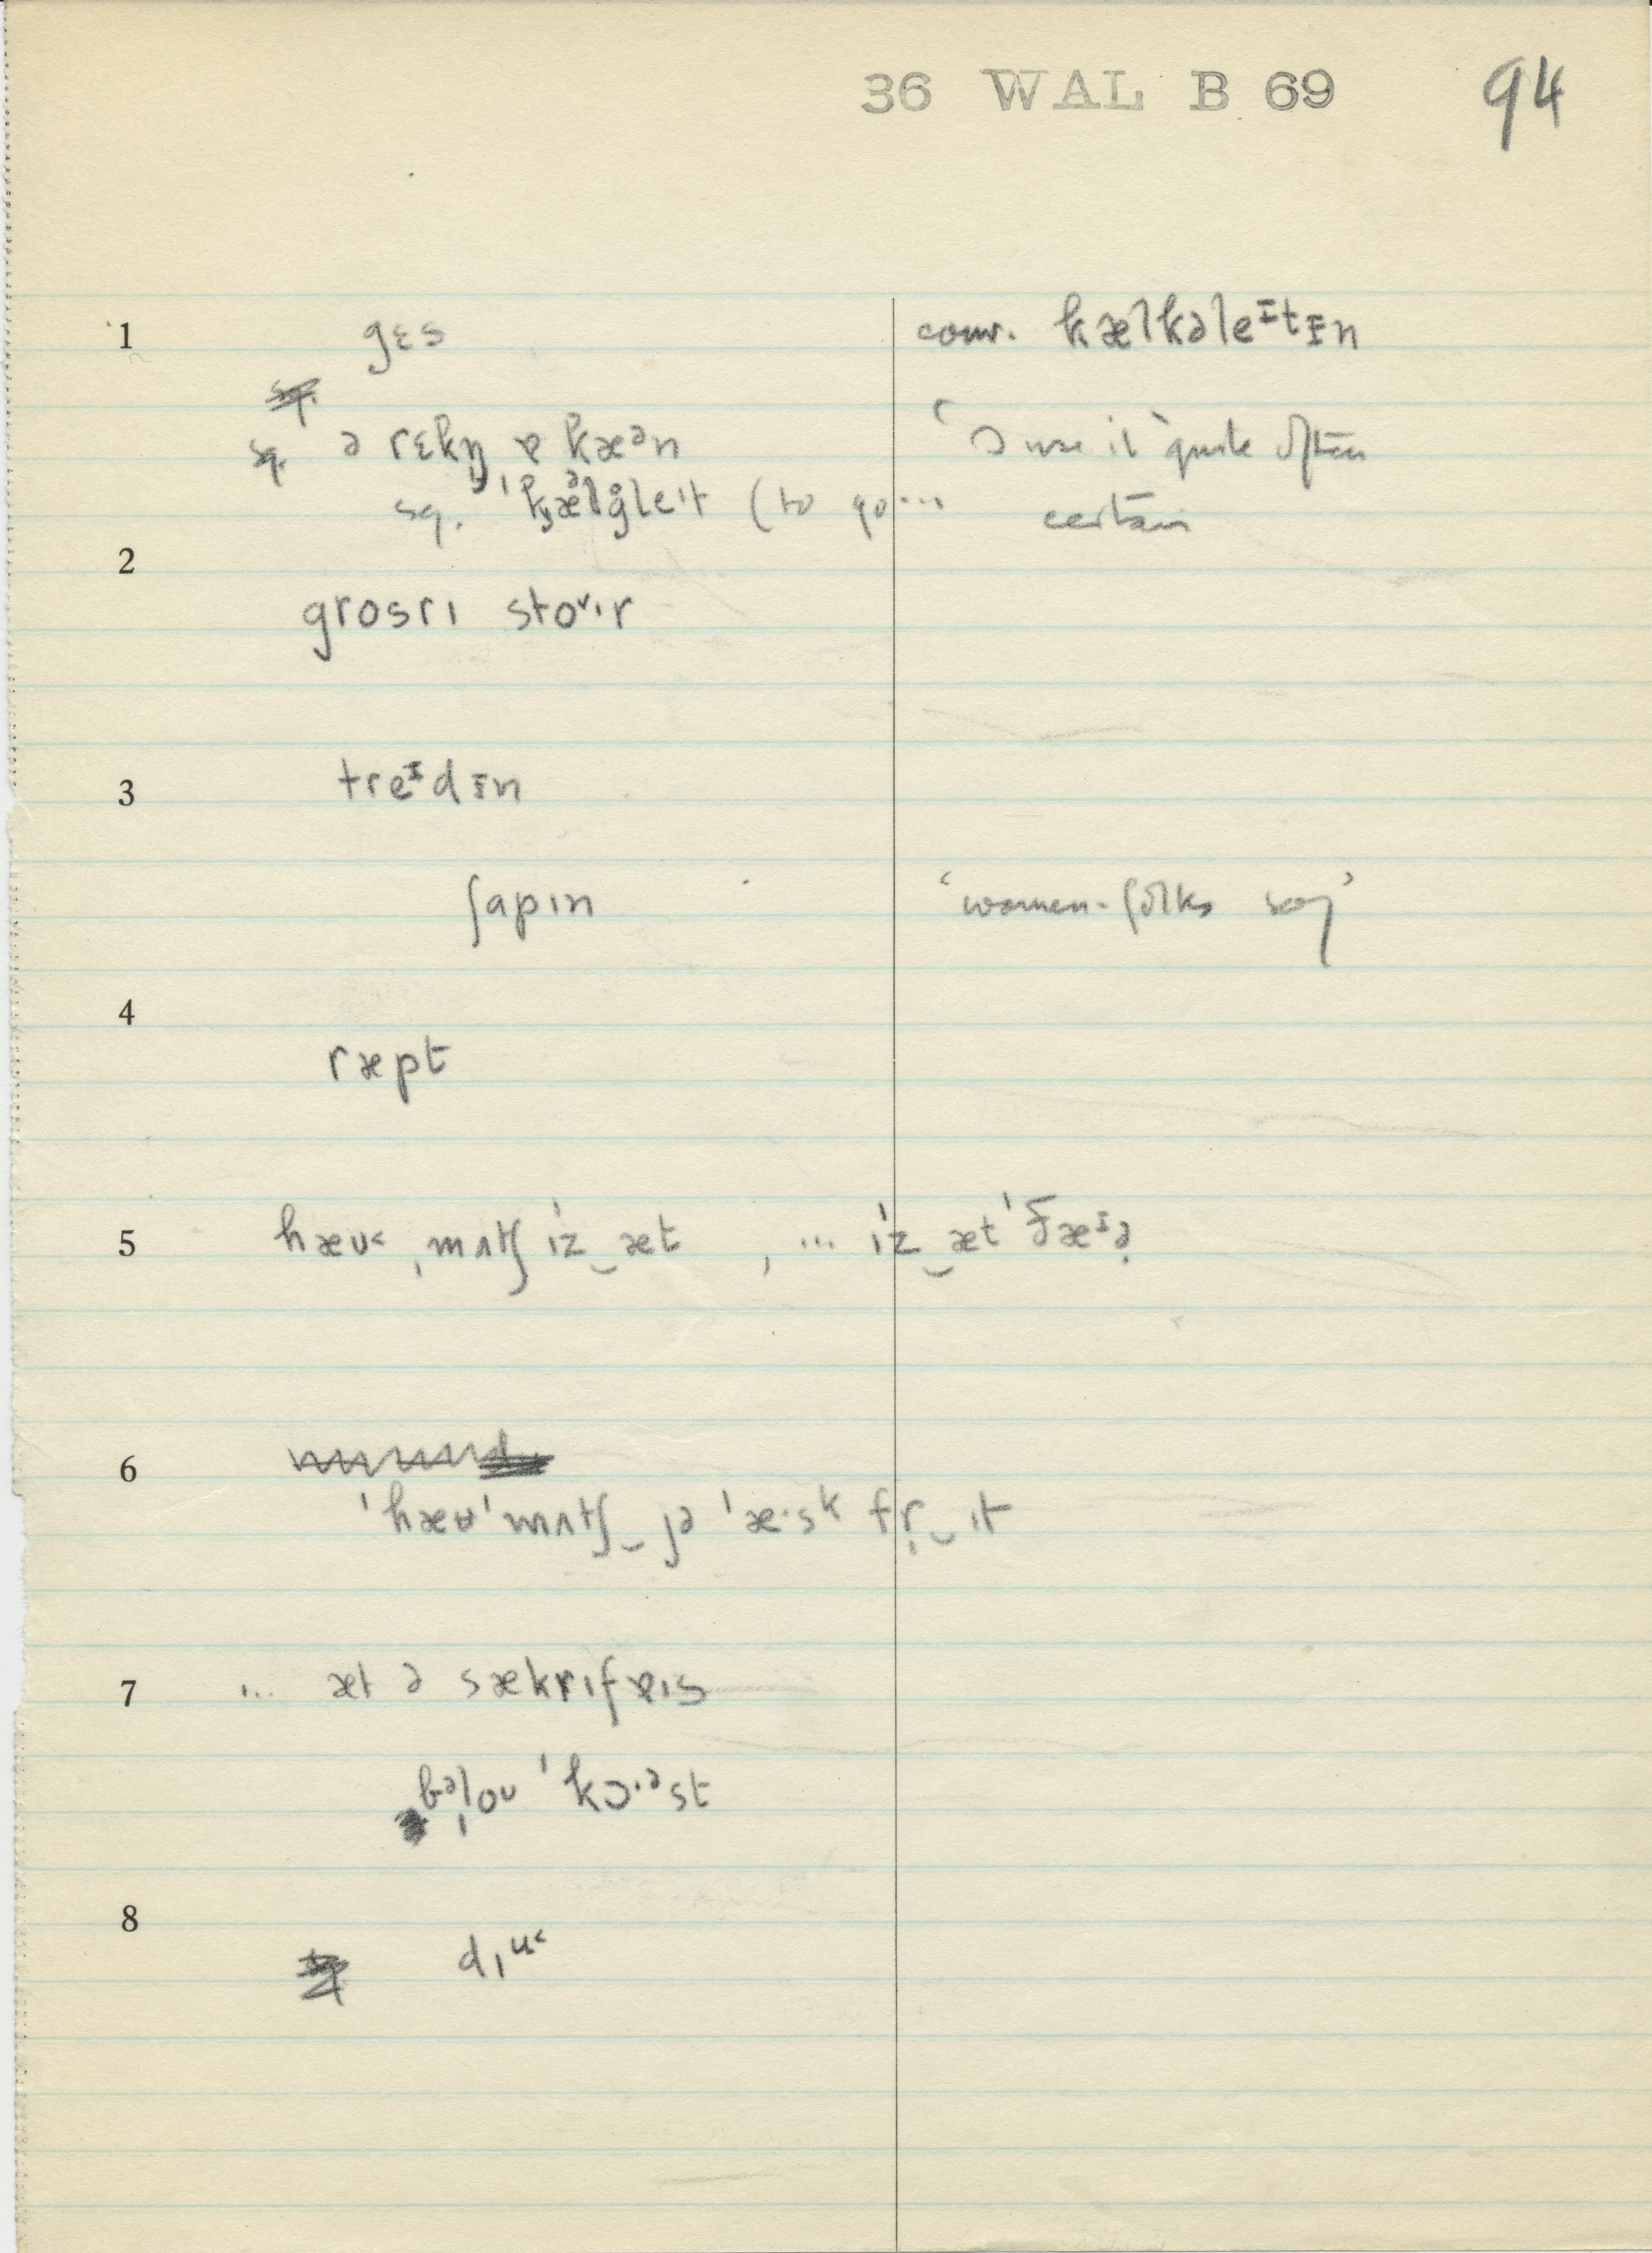 36 WAL B 69 94
1 gɛs conv. kælkəleᶦtɪn
sq. ə rɛkŋ ɐ kæᵊn 'I use it quite often
sq. (to go ... certain
2
grosrɪ stoᵛɪr
3 treᶦdɪn
ʃapɪn 'women-folks say'
4
ræpt
5 hæʊ˂ ˌmʌtʃ ˈɪz‿æt , ... ˈɪz‿ætˈðæᶦə̣
6
ˈhæʉˈmʌtʃ‿jə ˈæ·sk fr̩‿ɪt
7 ... æt ə sækrɪfɐɪs
bəˌloʊ ˈkɔ·ᵊst
8
dɪᵘ˂